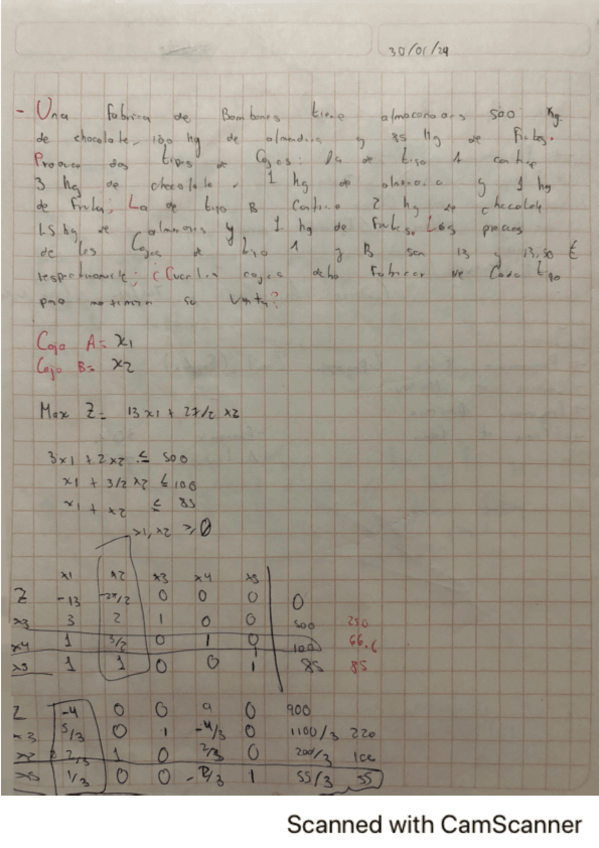 30/01/24
- Una fabrica de Bombones tiene almacenados 500 Kg
de chocolate, 100 Kg de almendra y 85 Kg de frutas.
Produce dos tipos de Cajas: La de tipo A contiene
3 kg de chocolate, 1 kg de almendra y 1 kg
de fruta; La de tipo B contiene 2 kg de chocolate
1.5 kg de almendra y 1 kg de frutas. Los precios
de las Cajas de tipo A y B son 13 y 13,50 €
respectivamente; ¿Cuantas cajas debe fabricar de Cada tipo
para maximizar su venta?
Caja A = x1
Caja B = x2
Max Z = 13x1 + 27/2 x2
3x1 + 2x2 ≤ 500
x1 + 3/2 x2 ≤ 100
x1 + x2 ≤ 85
x1, x2 ≥ 0
x1 x2 x3 x4 x5
Z -13 -27/2 0 0 0 0
x3 3 2 1 0 0 500 250
x4 1 3/2 0 1 0 100 66.6
x5 1 1 0 0 1 85 85
Z -4 0 0 9 0 900
x3 5/3 0 1 -4/3 0 1100/3 220
x2 2/3 1 0 2/3 0 200/3 100
x5 1/3 0 0 -2/3 1 55/3 55
Scanned with CamScanner